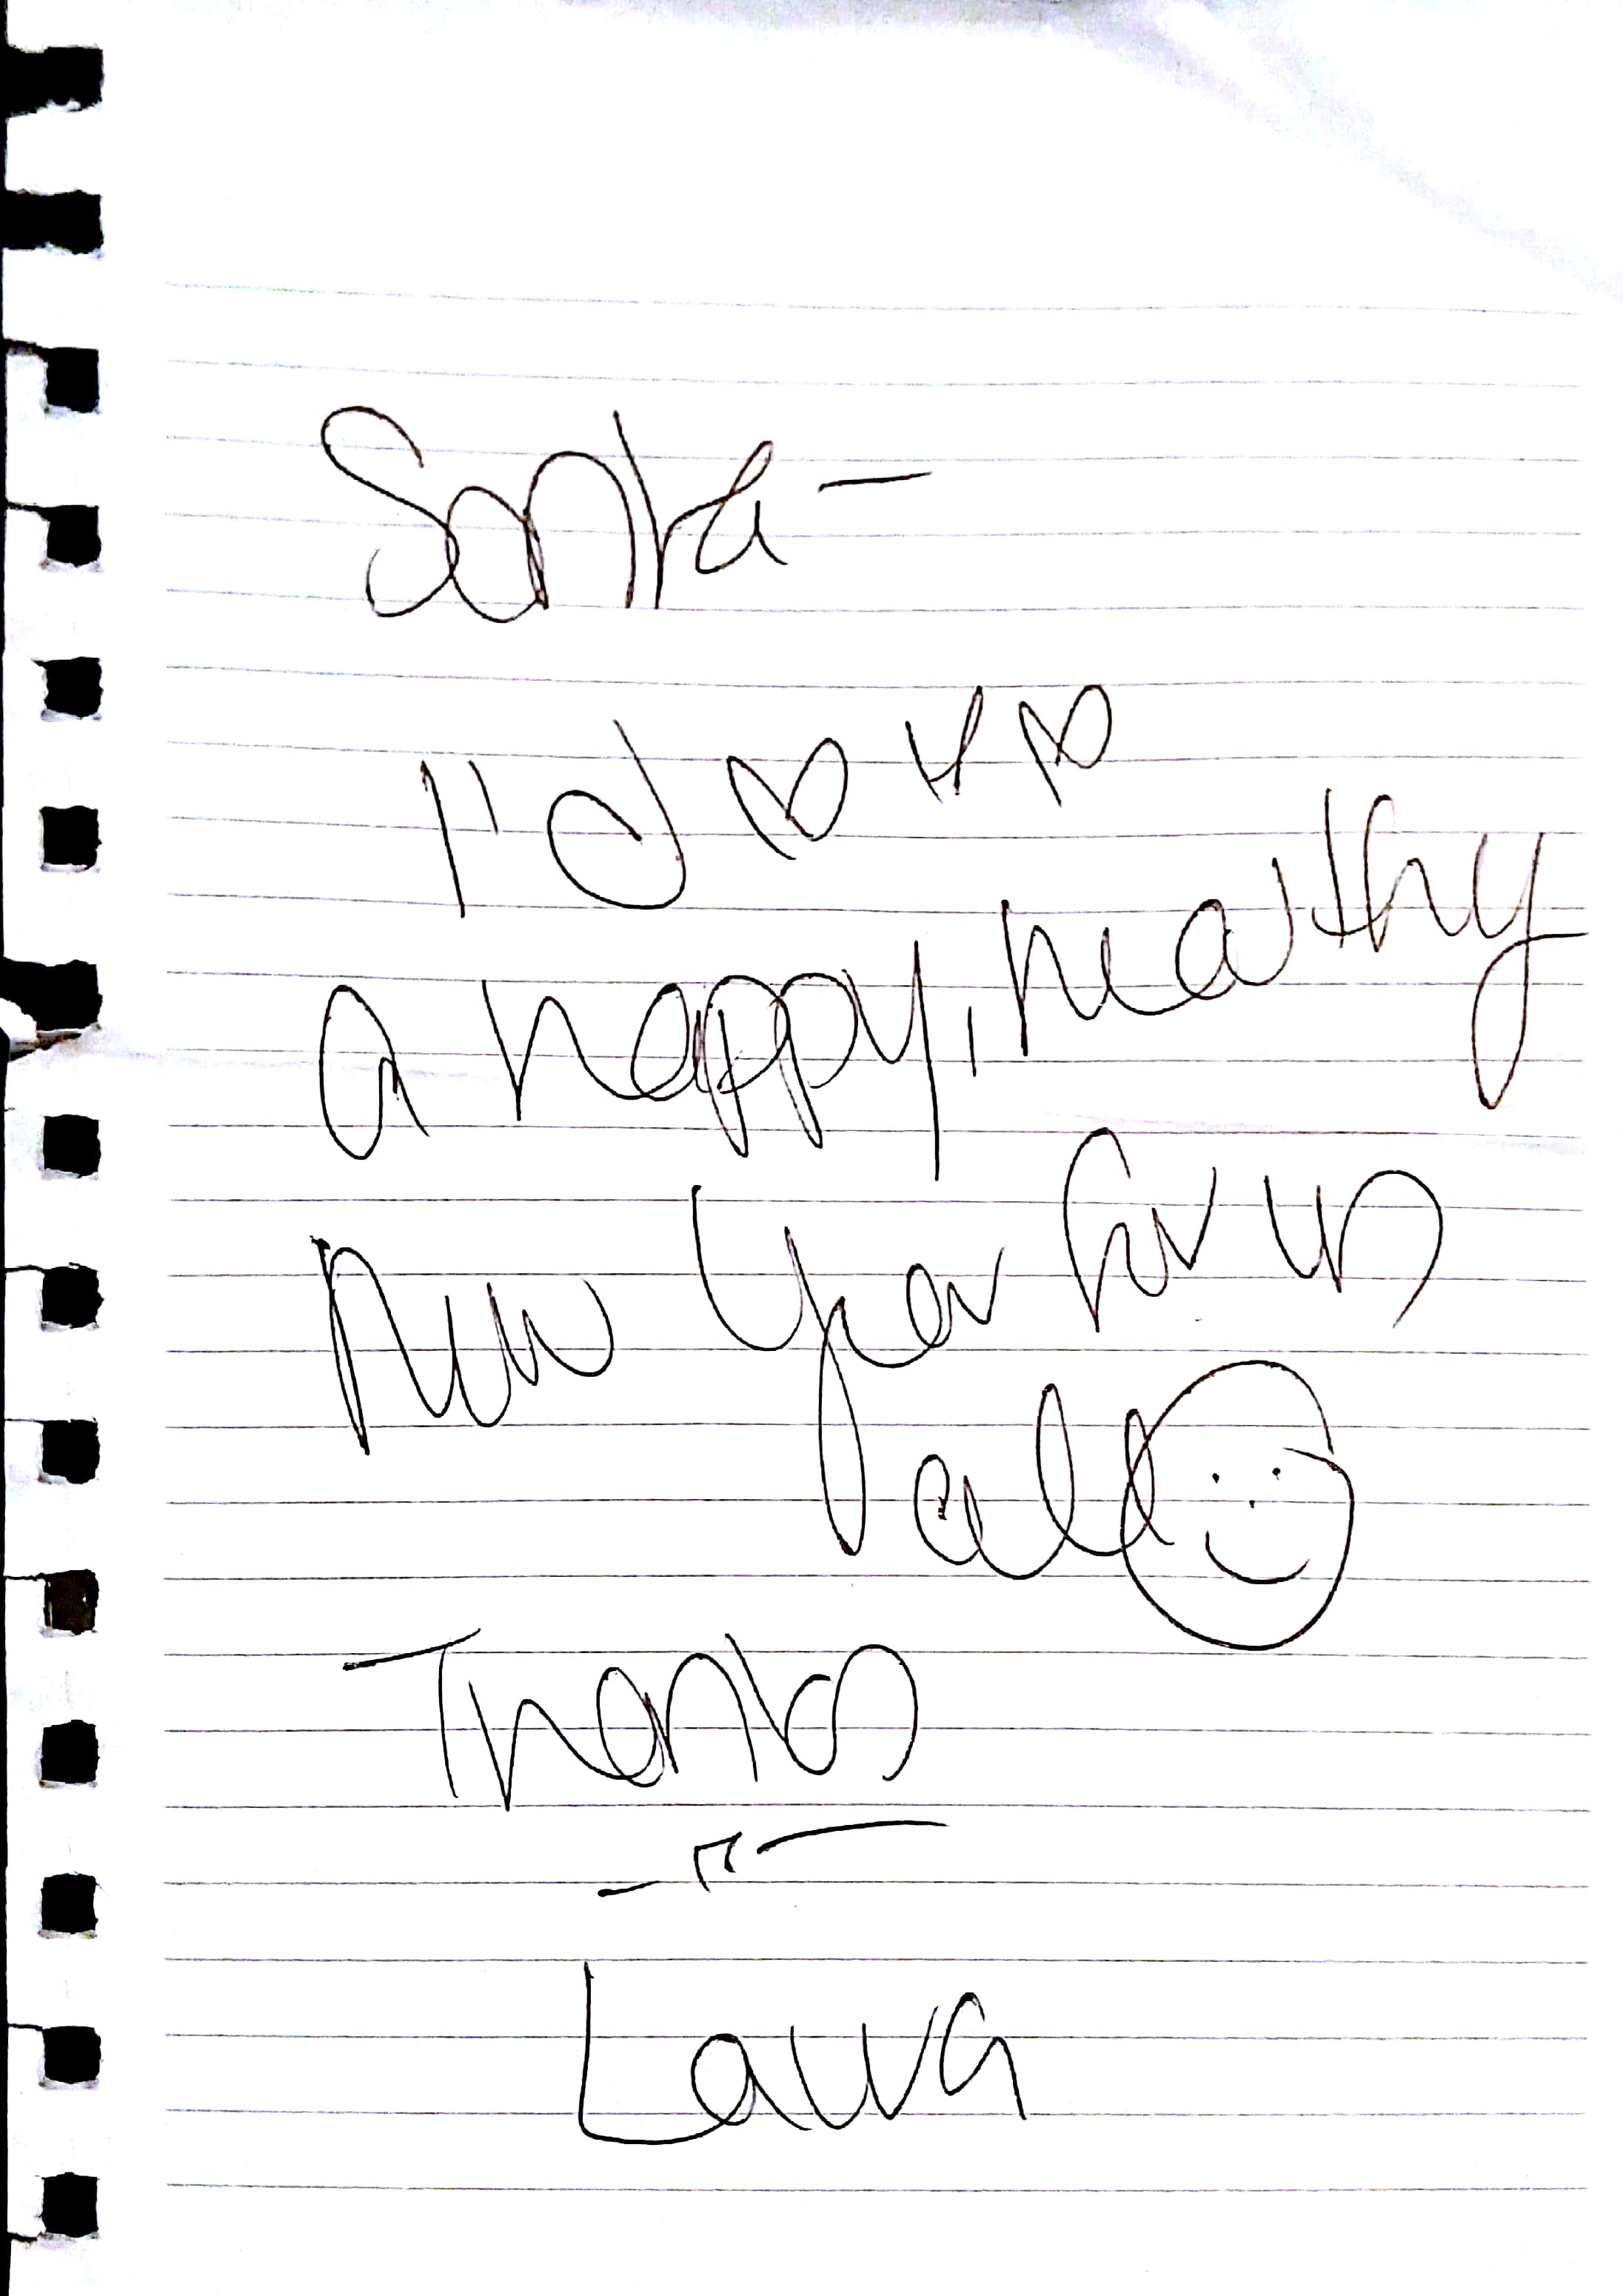 Santa -
I'd ♡ 4 ♡
a happy, healthy
New Year for us
all
Thanks
Laura